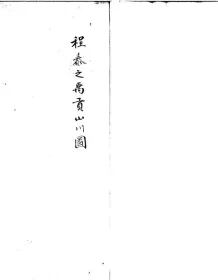 程泰之禹貢山川圖